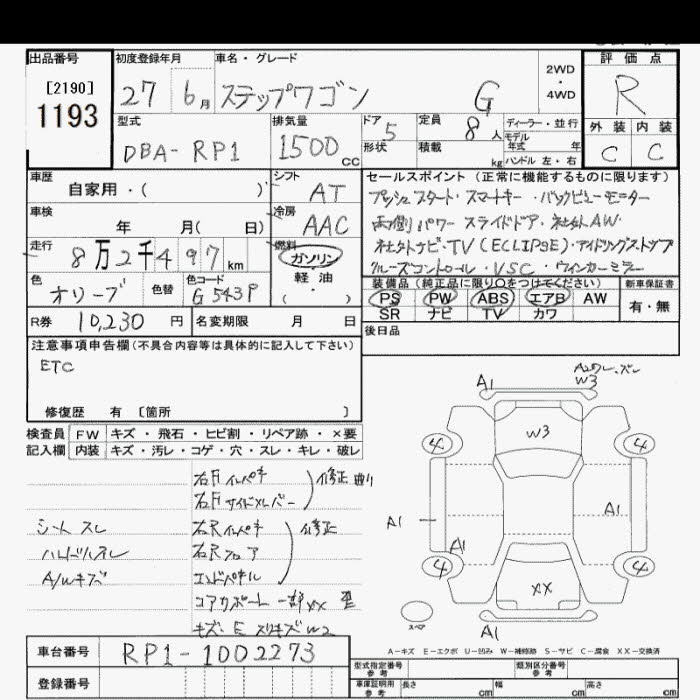 出品番号 初度登録年月 車名・グレード 2WD・4WD 評価点
[2190]
1193
27 6月 ステップワゴン G R
型式 排気量 ドア 5 定員 8人 ディーラー・並行 外装 内装
DBA-RP1 1500cc 形状 積載 kg モデル年式 年 ハンドル 左・右 C C
車歴 シフト セールスポイント (正常に機能するものに限ります)
自家用・( ) AT プッシュスタート・スマートキー・バックビューモニター
車検 冷房 両側パワースライドドア・社外AW・
年 月( 日) AAC 社外ナビ・TV(ECLIPSE)・アイドリングストップ
走行 燃料 クルーズコントロール・VSC・ウィンカーミラー
8万2千497km ガソリン 装備品(純正品に限り○をつけてください) 新車保証書
色 色替 色コード 軽・油 PS PW ABS エアB AW 有・無
オリーブ G543P ( ) SR ナビ TV カワ
R券 10,230円 名変期限 月 日 後日品
注意事項申告欄(不具合内容等は具体的に記入して下さい)
ETC
修復歴 有 [箇所 ]
検査員 FW キズ・飛石・ヒビ割・リペア跡・×要
記入欄 内装 キズ・汚レ・コゲ・穴・スレ・キレ・破レ
右Fインパネ 修正 曲り
右Fサイドメンバー
シートスレ 右Rインパネ 修正
ハンドルスレ 右Rフロア
A/Wキズ エンドパネル
コアサポート一部XX 歪
キズ・E スリキズ W2
A1 W3
W3
4 4
A1 A1
A1
4 4
XX
スペア
A1
A-キズ E-エクボ U-凹み W-補修跡 S-サビ C-腐食 XX-交換済
車台番号 RP1-1002273
登録番号
型式指定番号 参考 類別区分番号 参考
車庫証明用 参考 長さ cm 幅 cm 高さ cm